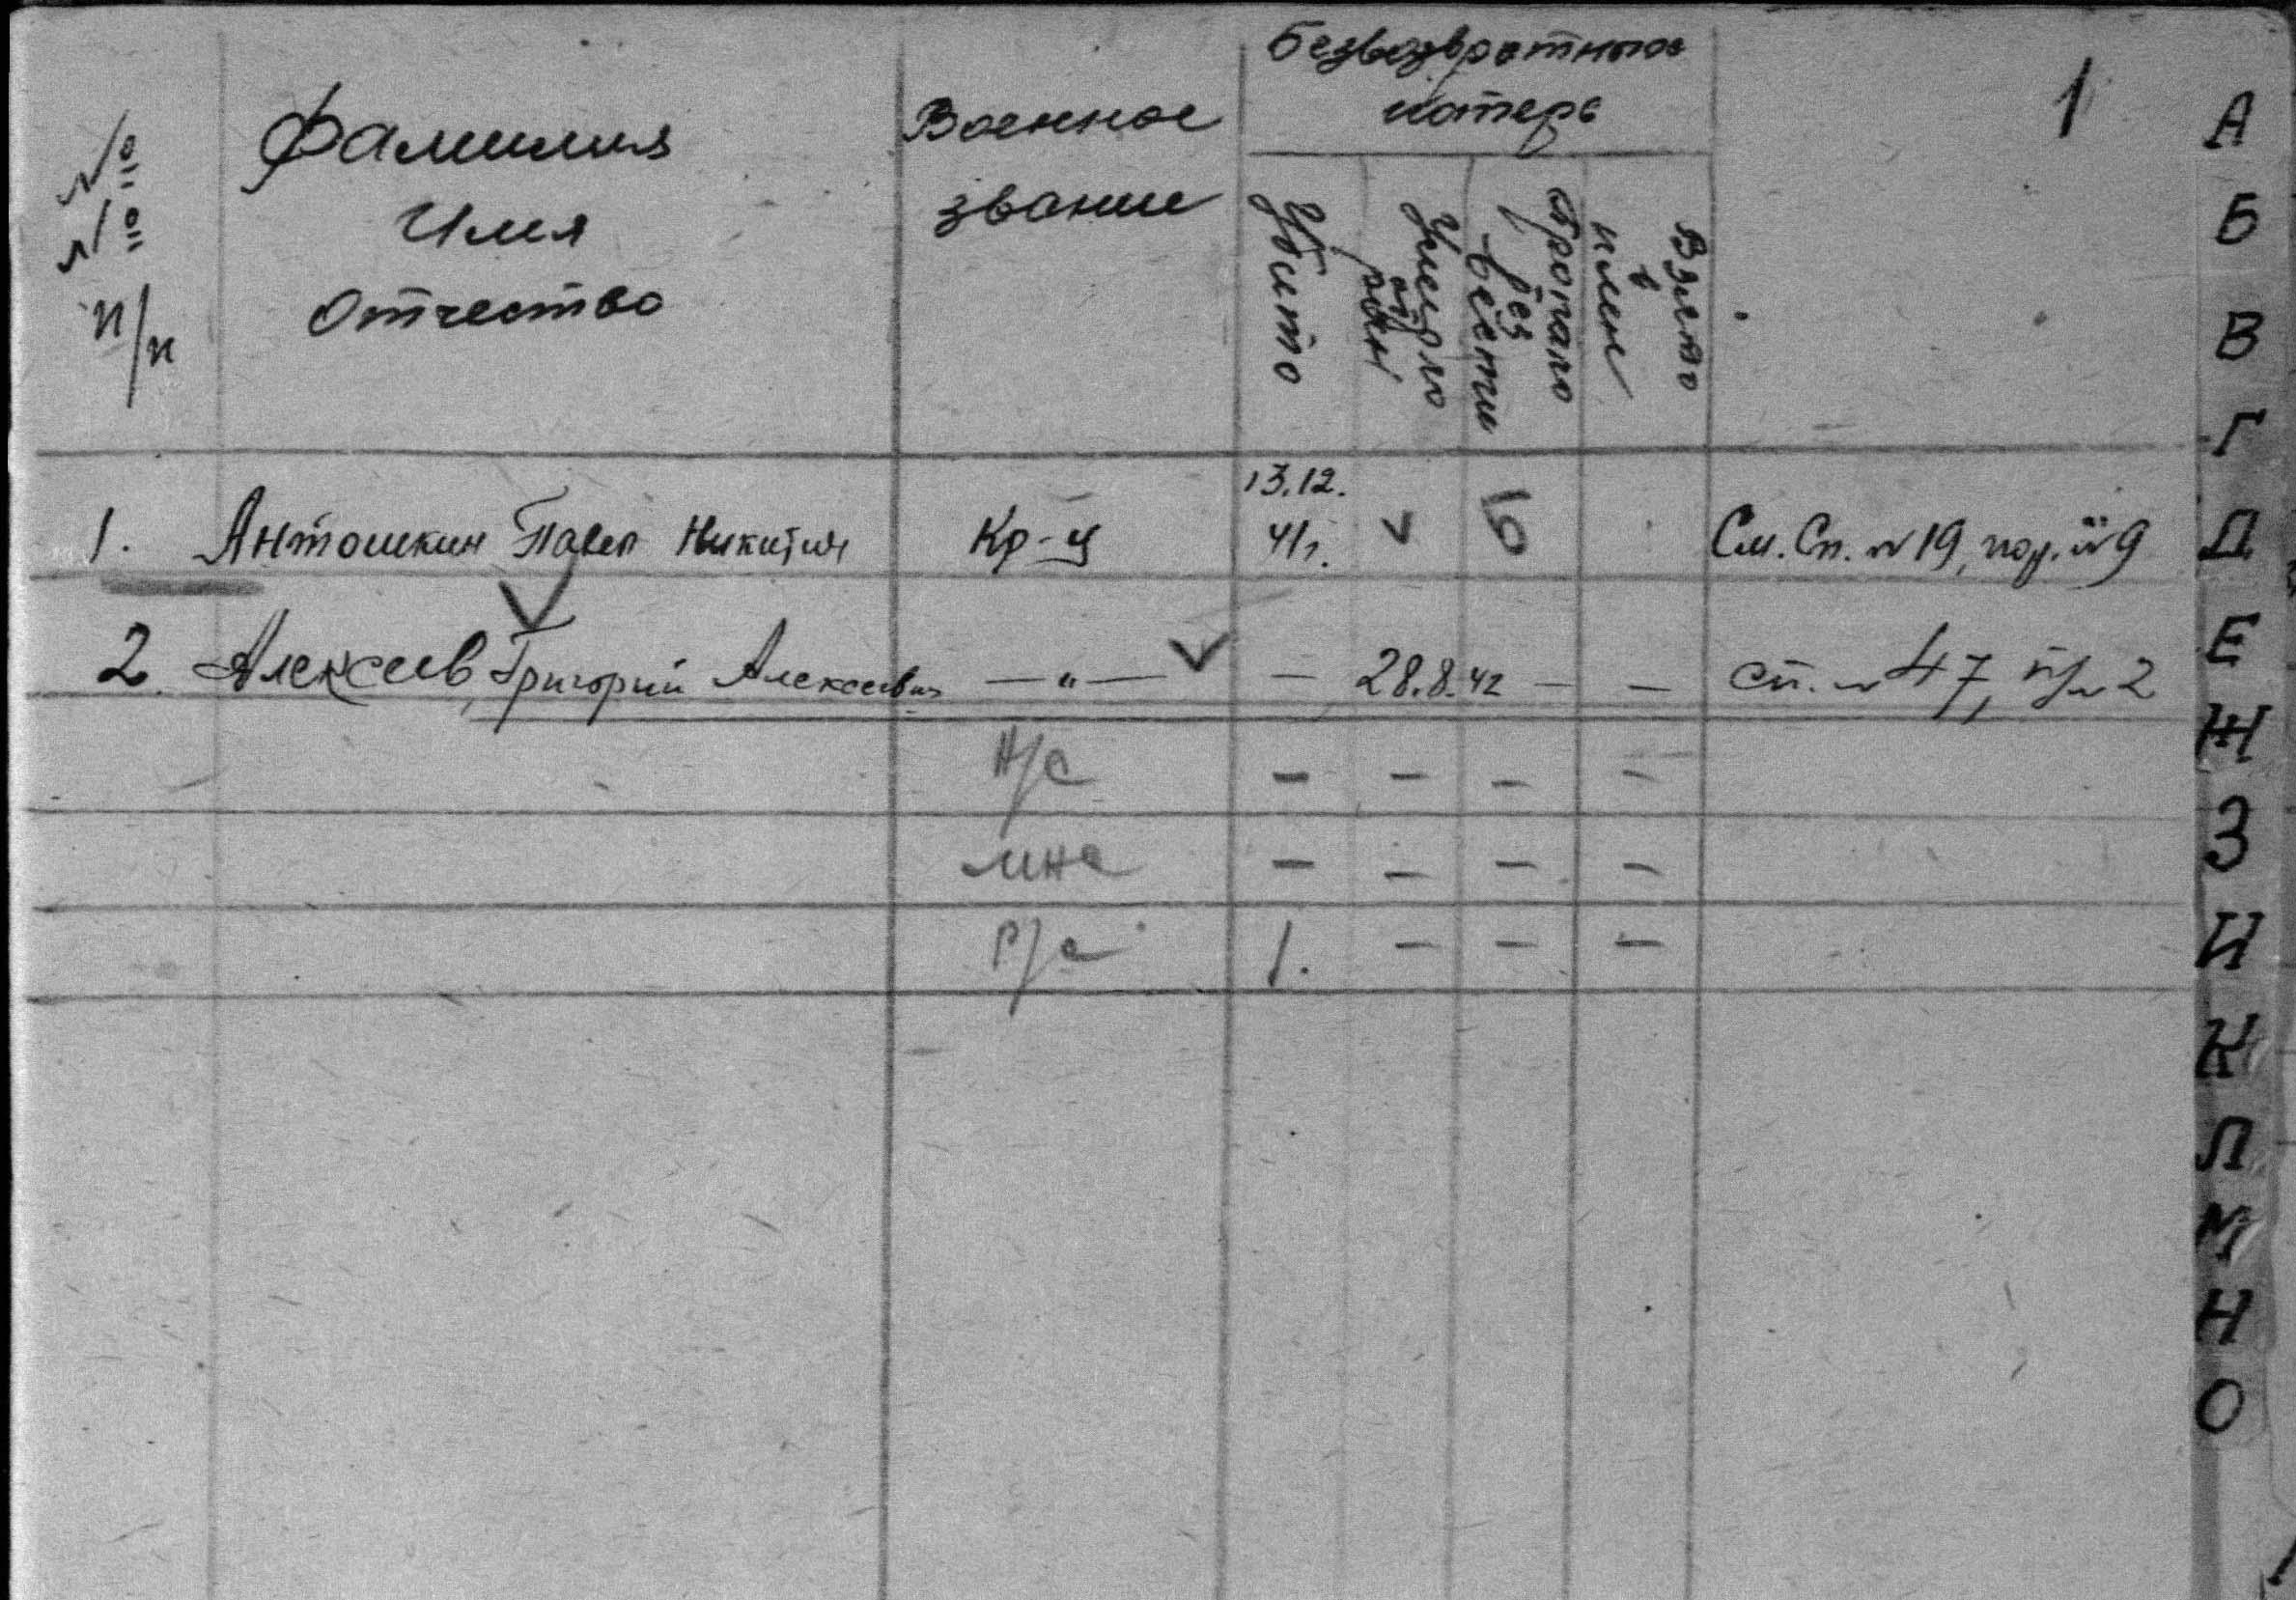 № № п/п Фамилия Имя Отчество Военное звание Безвозвратные потери 1
Убито Умерло от ран Пропало без вести Взято в плен
1. Антошкин Павел Никитич Кр-ц 13.12. 41г. См. Сп. № 19, пор. № 9
2. Алексеев Григорий Алексеевич — „ — — 28.8.42 — — сп. № 47, п/№ 2
Н/с — — — —
мнс — — — —
Р/с 1. — — —
А
Б
В
Г
Д
Е
Ж
З
И
К
Л
М
Н
О